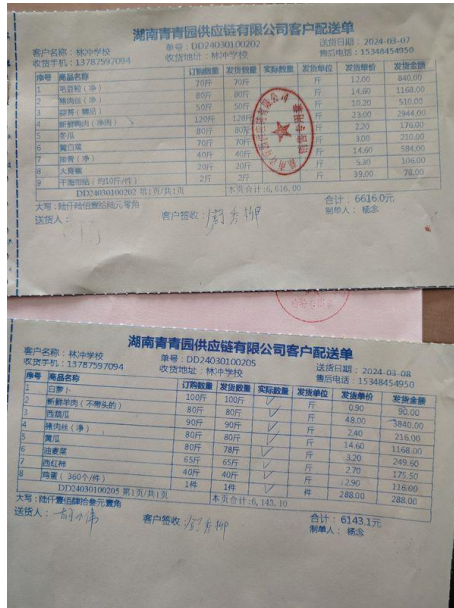 湖南青青园供应链有限公司客户配送单
客户名称：林冲学校 单号：DD24030100202 送货日期：2024-03-07
收货手机：13787597094 收货地址：林冲学校 售后电话：15348454950
序号 商品名称 订购数量 发货数量 实际数量 发货单位 发货单价 发货金额
1 毛豆粒（净） 70斤 70斤 斤 12.00 840.00
2 猪肉丝（净） 80斤 80斤 斤 14.60 1168.00
3 50斤 50斤 斤 10.20 510.00
4 新鲜鸭肉（净肉） 120斤 128斤 斤 23.00 2944.00
5 冬瓜 80斤 80斤 斤 2.20 176.00
6 黄白菜 70斤 70斤 斤 3.00 210.00
7 排骨（净） 40斤 40斤 斤 14.60 584.00
8 大青椒 20斤 20斤 斤 5.30 106.00
9 2斤 2斤 斤 39.00 78.00
DD24030100202 第1页/共1页 本页合计:6,616.00
大写：陆仟陆佰壹拾陆元零角 合计：6616.0元
送货人： 客户签收： 制单人：杨念
湖南青青园供应链有限公司客户配送单
客户名称：林冲学校 单号：DD24030100205 送货日期：2024-03-08
收货手机：13787597094 收货地址：林冲学校 售后电话：15348454950
序号 商品名称 订购数量 发货数量 实际数量 发货单位 发货单价 发货金额
1 白萝卜 100斤 100斤 斤 0.90 90.00
2 新鲜羊肉（不带头的） 80斤 80斤 斤 48.00 3840.00
3 西葫瓜 90斤 90斤 斤 2.40 216.00
4 猪肉丝（净） 80斤 80斤 斤 14.60 1168.00
5 黄瓜 80斤 78斤 斤 3.20 249.60
6 油麦菜 65斤 65斤 斤 2.70 175.50
7 西红柿 40斤 40斤 斤 2.90 116.00
8 鸡蛋（360个/件） 1件 1件 件 288.00 288.00
DD24030100205 第1页/共1页 本页合计:6,143.10
大写：陆仟壹佰肆拾叁元壹角 合计：6143.1元
送货人： 客户签收： 制单人：杨念